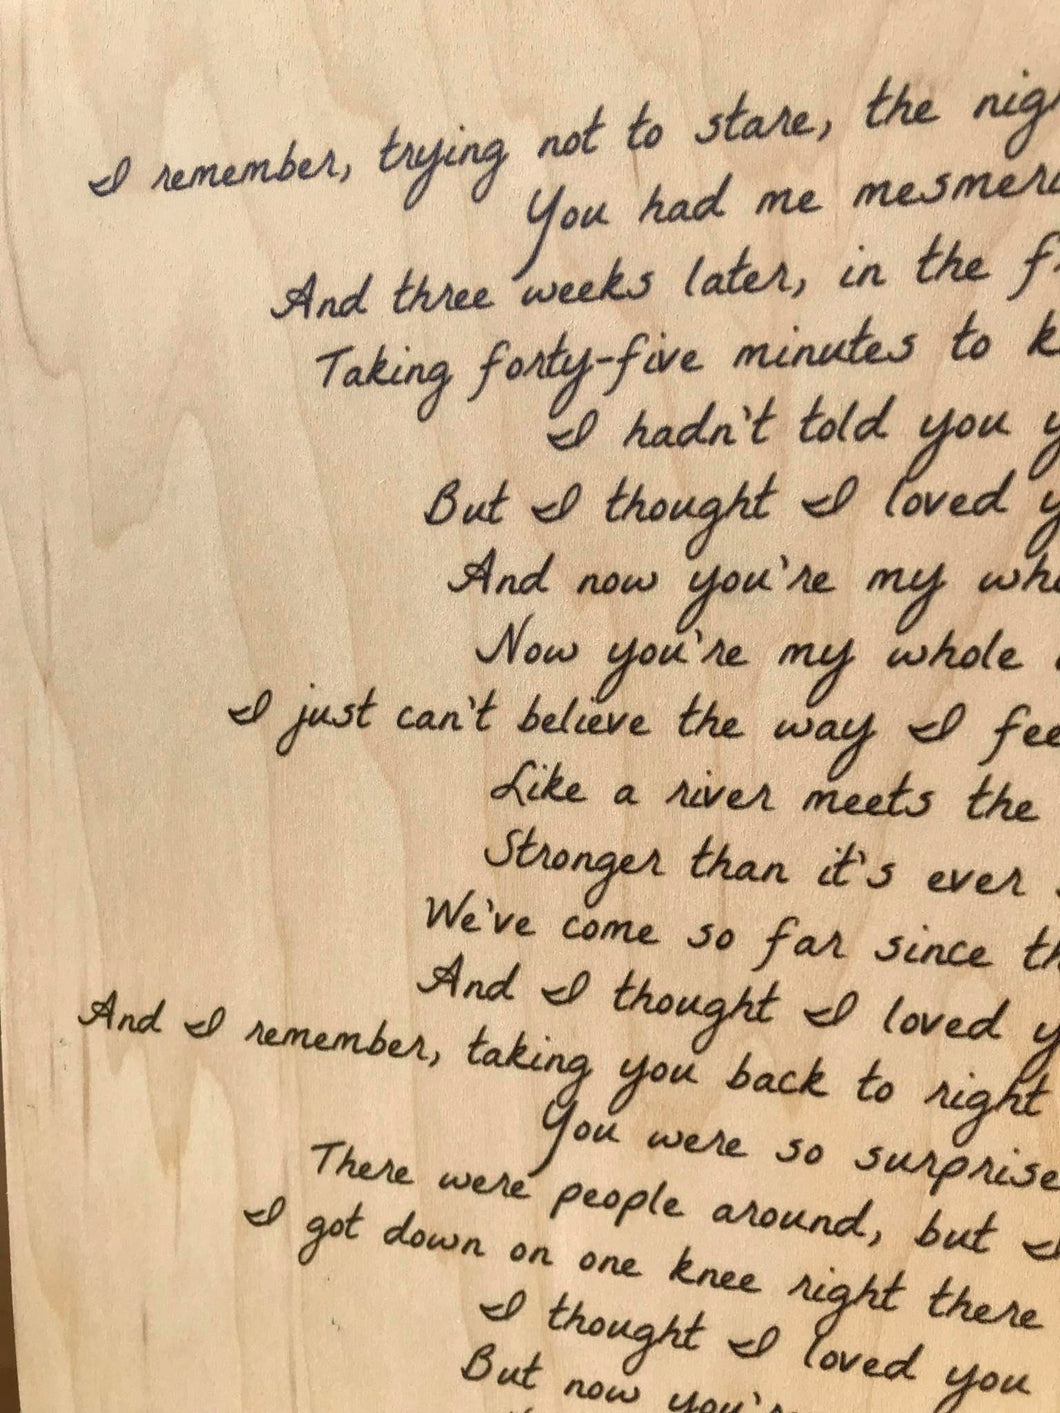 I remember, trying not to stare, the nigh
You had me mesmeri
And three weeks later, in the f
Taking forty-five minutes to k
I hadn't told you y
But I thought I loved y
And now you're my who
Now you're my whole
I just can't believe the way I fee
Like a river meets the
Stronger than it's ever
We've come so far since th
And I thought I loved y
And I remember, taking you back to right
You were so surprise
There were people around, but I
I got down on one knee right there
I thought I loved you
But now you're